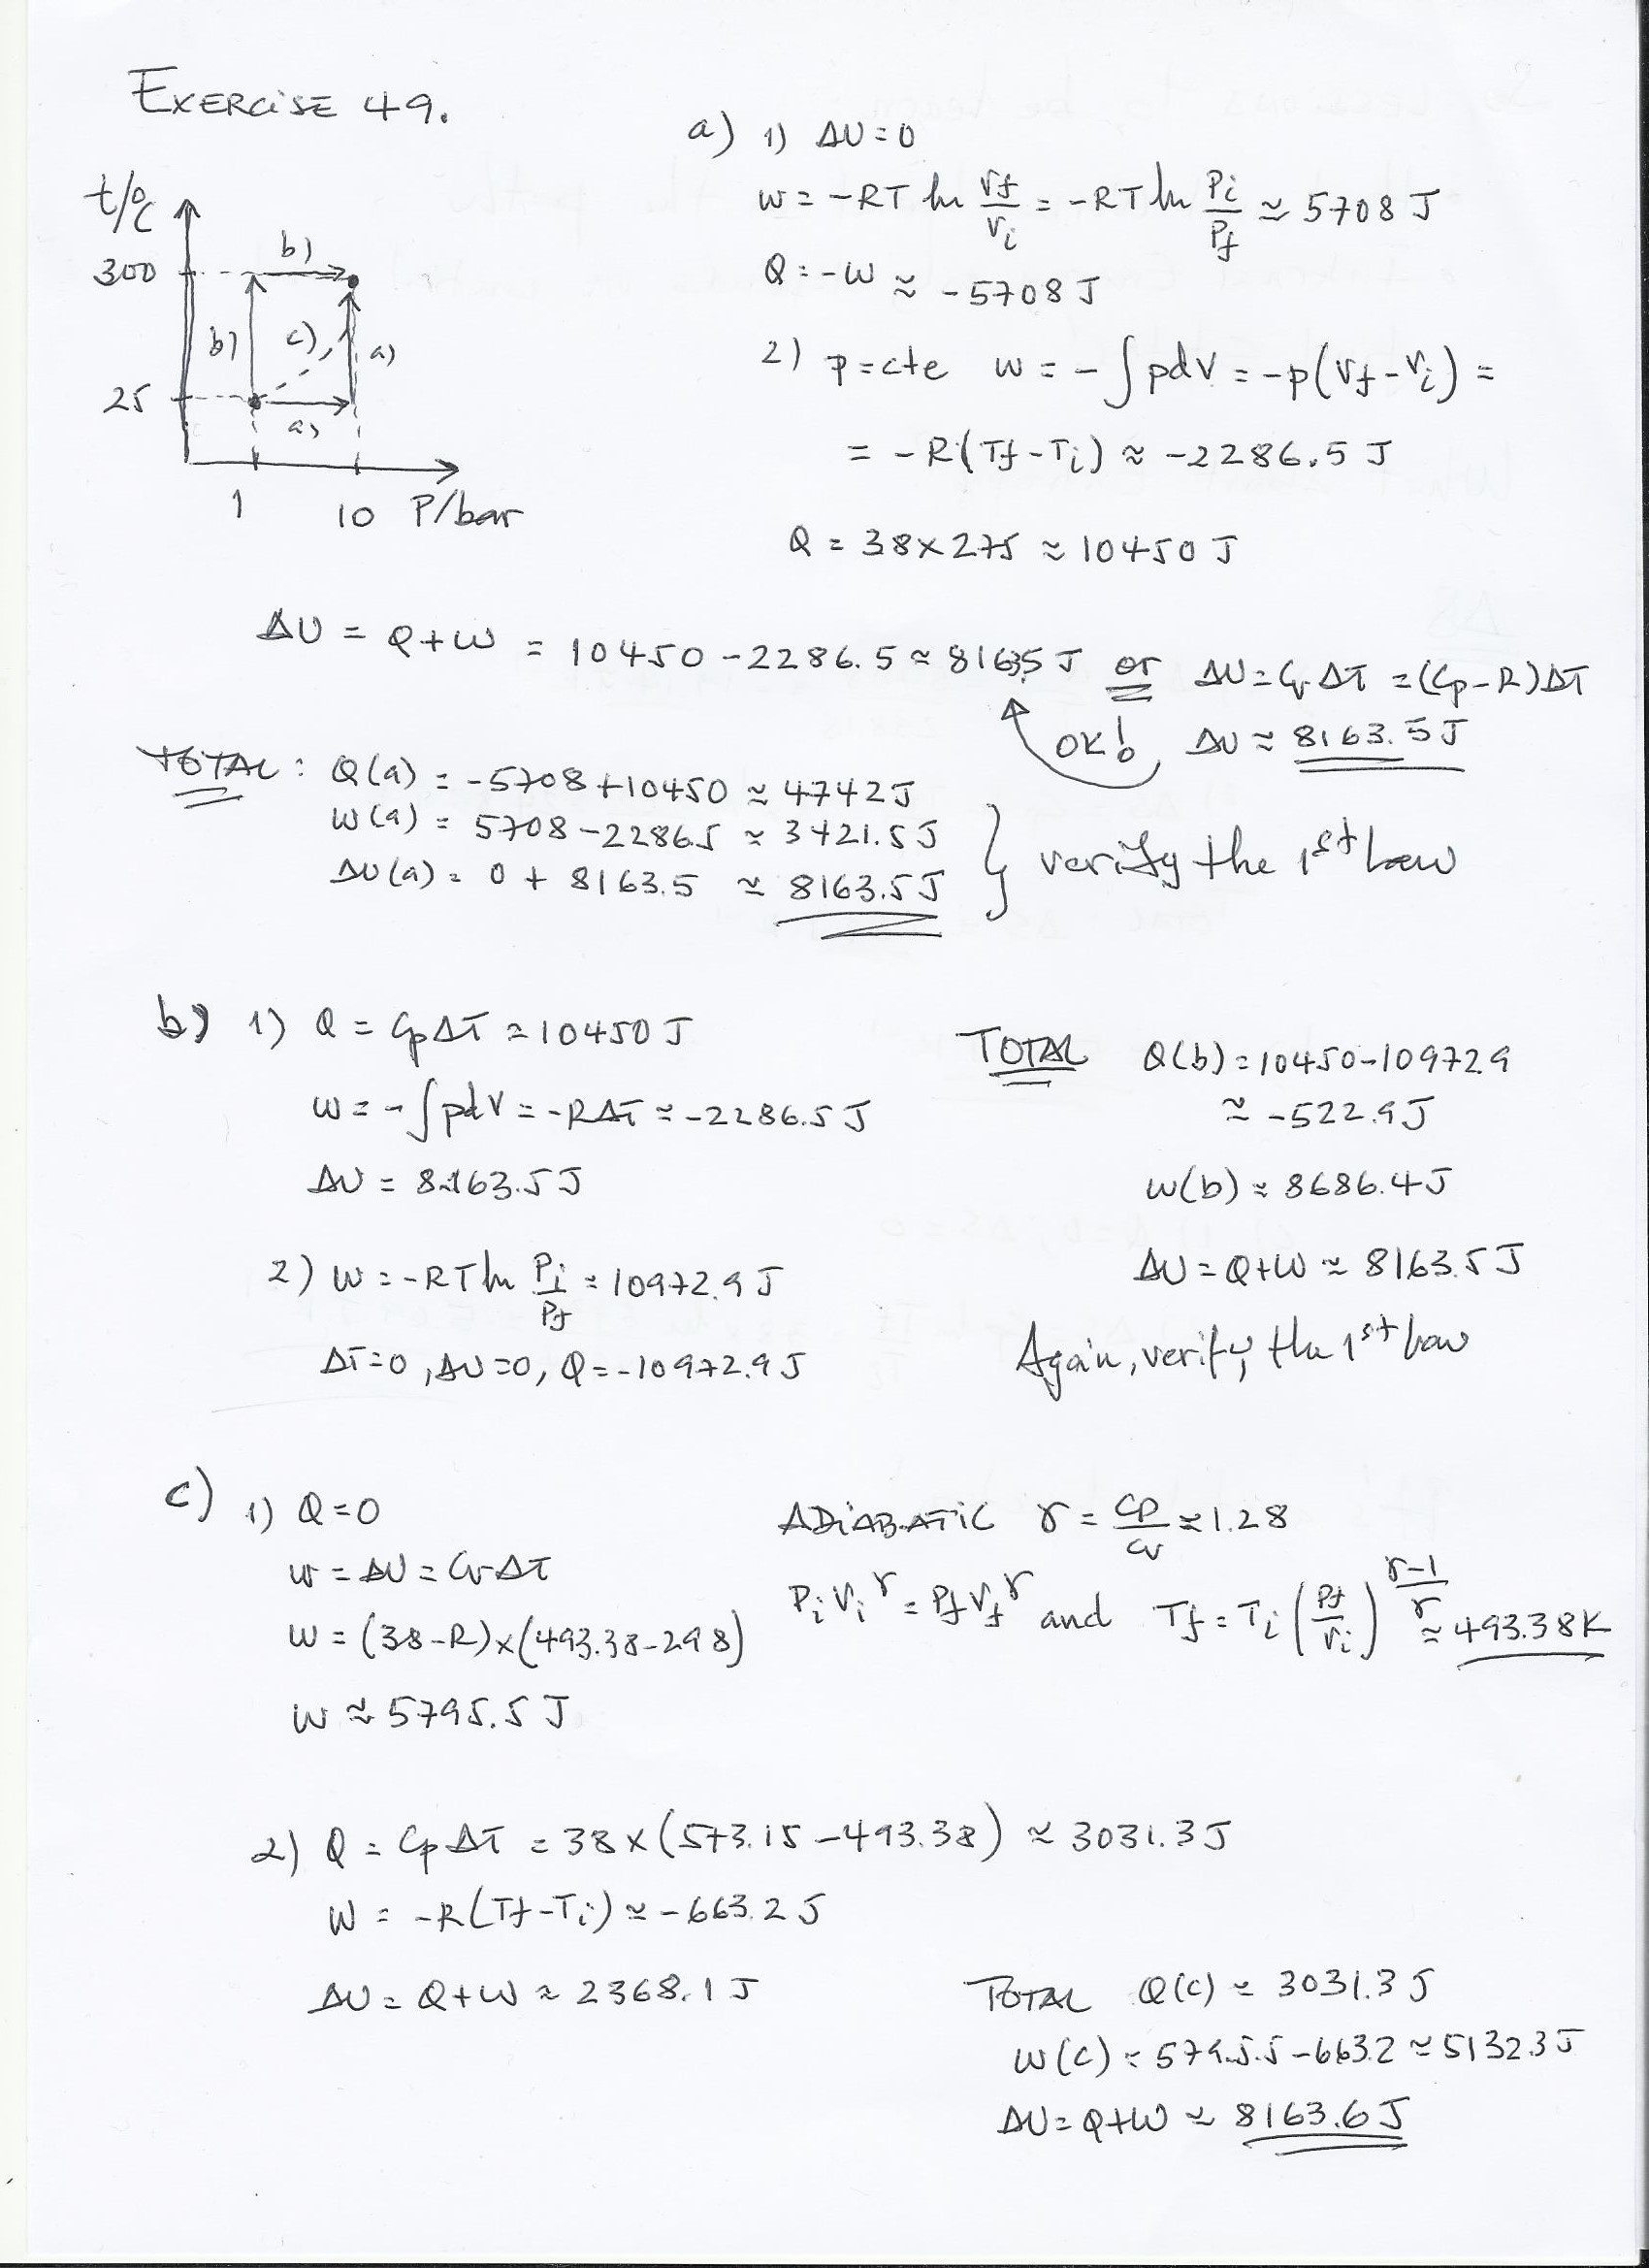 EXERCISE 49.
t/°C
300
25
b)
b)
c)
a)
a)
1
10
P/bar
a) 1) ΔU=0
W = -RT ln Vf/Vi = -RT ln Pi/Pf ≈ 5708 J
Q = -W ≈ -5708 J
2) p=cte W = -∫pdV = -p(Vf-Vi) =
= -R(Tf-Ti) ≈ -2286.5 J
Q = 38×275 ≈ 10450 J
ΔU = Q+W = 10450-2286.5 ≈ 8163.5 J or ΔU=CvΔT = (Cp-R)ΔT
OK! ΔU ≈ 8163.5 J
TOTAL: Q(a) = -5708+10450 ≈ 4742 J
W(a) = 5708-2286.5 ≈ 3421.5 J
ΔU(a) = 0 + 8163.5 ≈ 8163.5 J
} verify the 1st Law
b) 1) Q = CpΔT ≈ 10450 J
W = -∫pdV = -RΔT ≈ -2286.5 J
ΔU = 8163.5 J
2) W = -RT ln Pi/Pf = 10972.9 J
ΔT=0, ΔU=0, Q=-10972.9 J
TOTAL Q(b) = 10450-10972.9
≈ -522.9 J
W(b) ≈ 8686.4 J
ΔU = Q+W ≈ 8163.5 J
Again, verify the 1st law
c) 1) Q=0
W = ΔU = CvΔT
W = (38-R)×(493.38-298)
W ≈ 5795.5 J
ADIABATIC γ = Cp/Cv ≈ 1.28
PiVi^γ = PfVf^γ and Tf = Ti (Pf/Pi)^((γ-1)/γ) ≈ 493.38K
2) Q = CpΔT = 38×(573.15-493.38) ≈ 3031.3 J
W = -R(Tf-Ti) ≈ -663.2 J
ΔU = Q+W ≈ 2368.1 J
TOTAL Q(c) ≈ 3031.3 J
W(c) ≈ 5795.5-663.2 ≈ 5132.3 J
ΔU = Q+W ≈ 8163.6 J